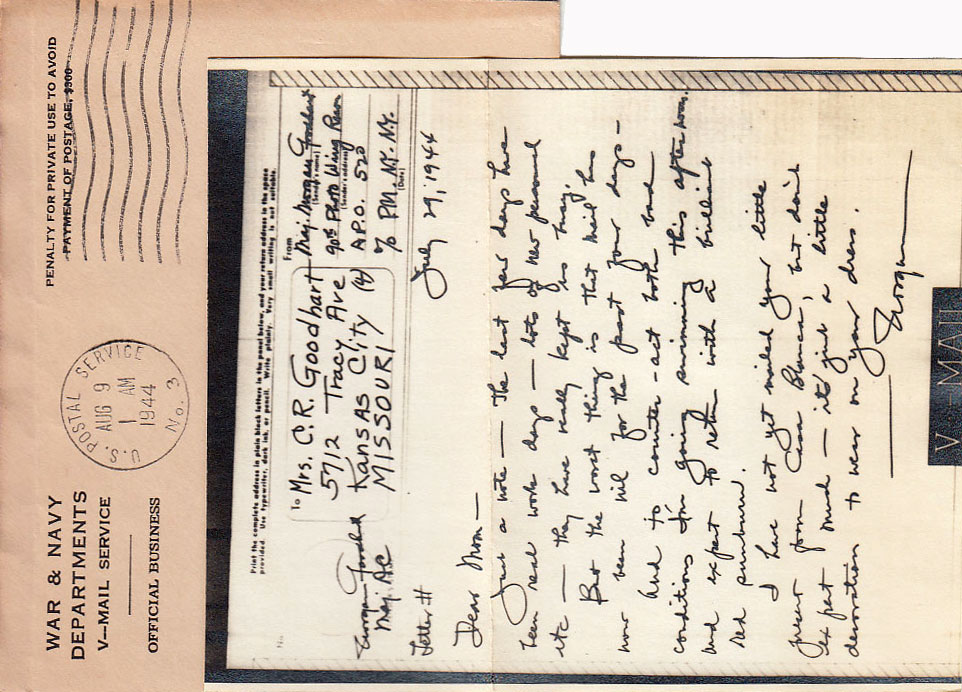 WAR & NAVY
DEPARTMENTS
V-MAIL SERVICE
OFFICIAL BUSINESS
U.S. POSTAL SERVICE
AUG 9
1 AM
1944
No. 3
PENALTY FOR PRIVATE USE TO AVOID
PAYMENT OF POSTAGE, $300
Print the complete address in plain block letters in the panel below, and your return address in the space
provided. Use typewriter, dark ink, or pencil. Write plainly. Very small writing is not suitable.
No.
To Mrs. C. R. Goodhart
5712 Tracy Ave
KANSAS City (4)
MISSOURI
From
Maj. Morgan Goodhart
(Sender's name)
90th Photo Wing Recn
(Sender's address)
A.P.O. 520
% PM, NY. N.Y.
(Date)
Morgan Goodhart
Maj. AC
Letter #
July 29, 1944
Dear Mom —
Just a note — The last few days have
been real work days — lots of new personnel
etc — they have really kept us busy.
But the worst thing is that mail has
now been nil for the past four days —
And to counter-act both bad
conditions I'm going swimming this afternoon.
and expect to return with a brilliant
red sunburn.
I have not yet mailed your little
present from Casa Blanca, but don't
expect much — it's just a little
decoration to wear on your dress.
Morgan
V···— MAIL